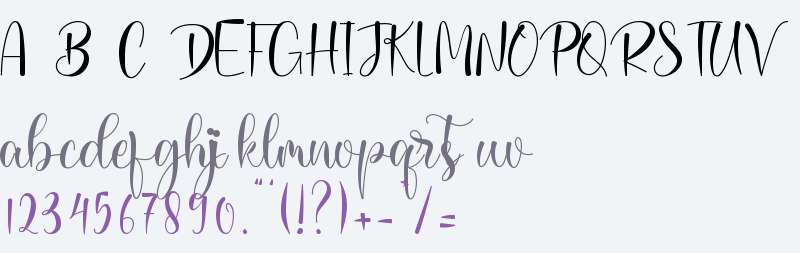 A B C DEFGHIJKLMNOPQRSTUV
abcdefghij klmnopqrst uv
1234567890."''(!?)+-*/=